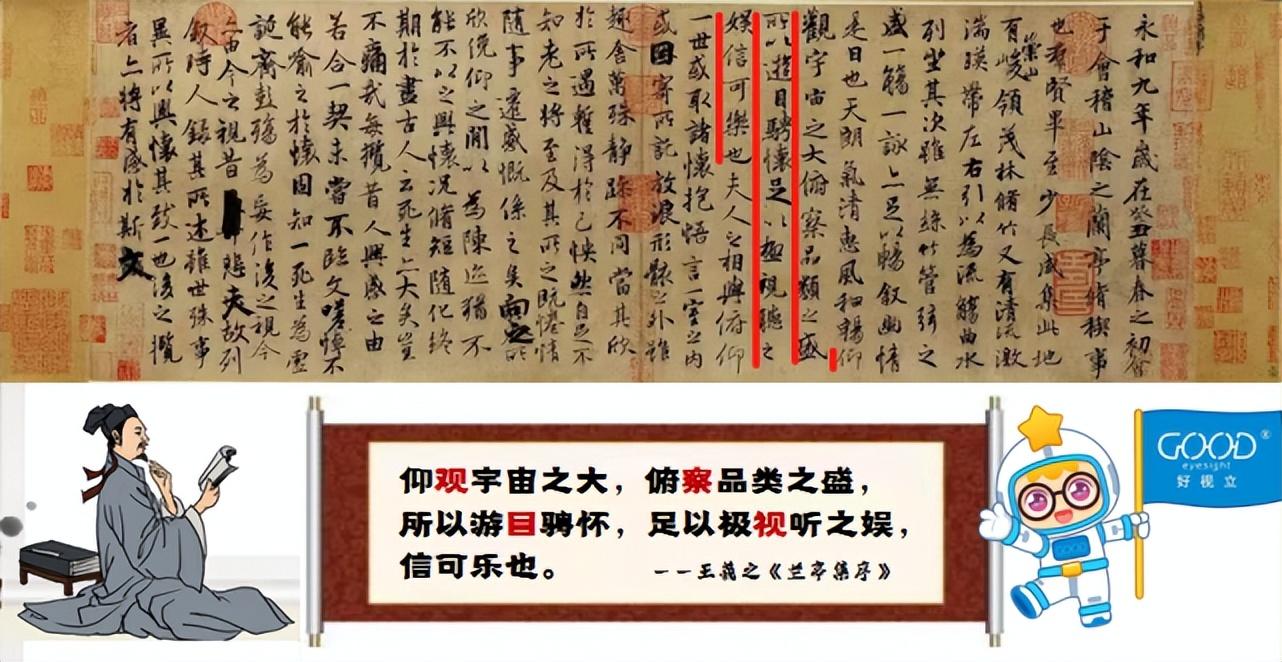 永和九年歲在癸丑暮春之初會
于會稽山陰之蘭亭脩稧事
也羣賢畢至少長咸集此地
有崇山峻領茂林脩竹又有清流激
湍暎帶左右引以為流觴曲水
列坐其次雖無絲竹管弦之
盛一觴一詠亦足以暢叙幽情
是日也天朗氣清惠風和暢仰
觀宇宙之大俯察品類之盛
所以遊目騁懷足以極視聽之
娛信可樂也夫人之相與俯仰
一世或取諸懷抱悟言一室之內
或因寄所託放浪形骸之外雖
趣舍萬殊靜躁不同當其欣
於所遇暫得於己怏然自足不
知老之將至及其所之既惓情
隨事遷感慨係之矣向之所
欣俛仰之閒以為陳迹猶不
能不以之興懷況脩短隨化終
期於盡古人云死生亦大矣豈
不痛哉每攬昔人興感之由
若合一契未嘗不臨文嗟悼不
能喻之於懷固知一死生為虛
誕齊彭殤為妄作後之視今
亦由今之視昔悲夫故列
叙時人錄其所述雖世殊事
異所以興懷其致一也後之攬
者亦將有感於斯文
仰观宇宙之大，俯察品类之盛，
所以游目骋怀，足以极视听之娱，
信可乐也。
——王羲之《兰亭集序》
GOOD®
eyesight
好视立
GOOD